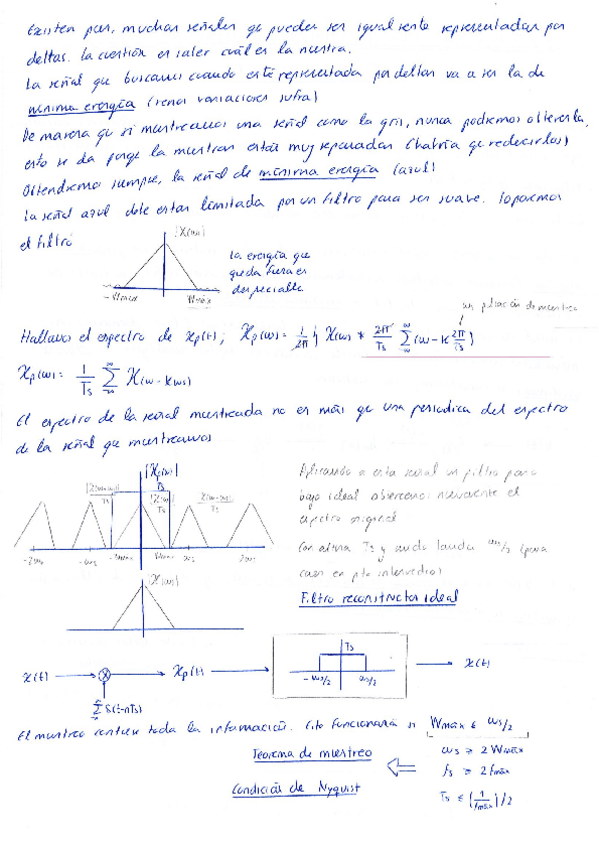 Existen pues, muchas señales qe pueden ser igualmente representadas por
deltas. La cuestión es saber cuál es la nuestra.
La señal que buscamos cuando esté representada por deltas va a ser la de
mínima energía (menos variaciones sufra)
De manera qe si muestreamos una señal como la gris, nunca podremos obtenerla,
esto se da porqe las muestras están muy separadas (habría qe reducirlas)
Obtendremos siempre, la señal de mínima energía (azul)
La señal azul debe estar limitada por un filtro para ser suave. Toparemos
el filtro
|X(w)|
-Wmax Wmáx
la energía que
queda fuera es
despreciable
Hallamos el espectro de xp(t); Xp(w) = 1/2π { X(w) * 2π/Ts Σ (w - k 2π/Ts)
Xp(w) = 1/Ts Σ X(w - kws)
El espectro de la señal muestreada no es más qe una periodica del espectro
de la señal que muestreamos
|Xp(w)|
Ts
-2ws -ws -Wmax Wmax ws 2ws
Aplicando a esta señal un filtro paso
bajo ideal obtenemos nuevamente el
espectro original
Con altura Ts y ancho banda ws/2 (para
caer en pto intermedio)
Filtro reconstructor ideal
|X(w)|
x(t) xp(t) Ts -ws/2 ws/2 x(t)
Σ δ(t-nTs)
El muestreo contiene toda la información. Esto funcionará si Wmáx ≤ ws/2
Teorema de muestreo ws ≥ 2Wmáx
fs ≥ 2fmáx
Condición de Nyquist Ts ≤ (1/fmáx)/2